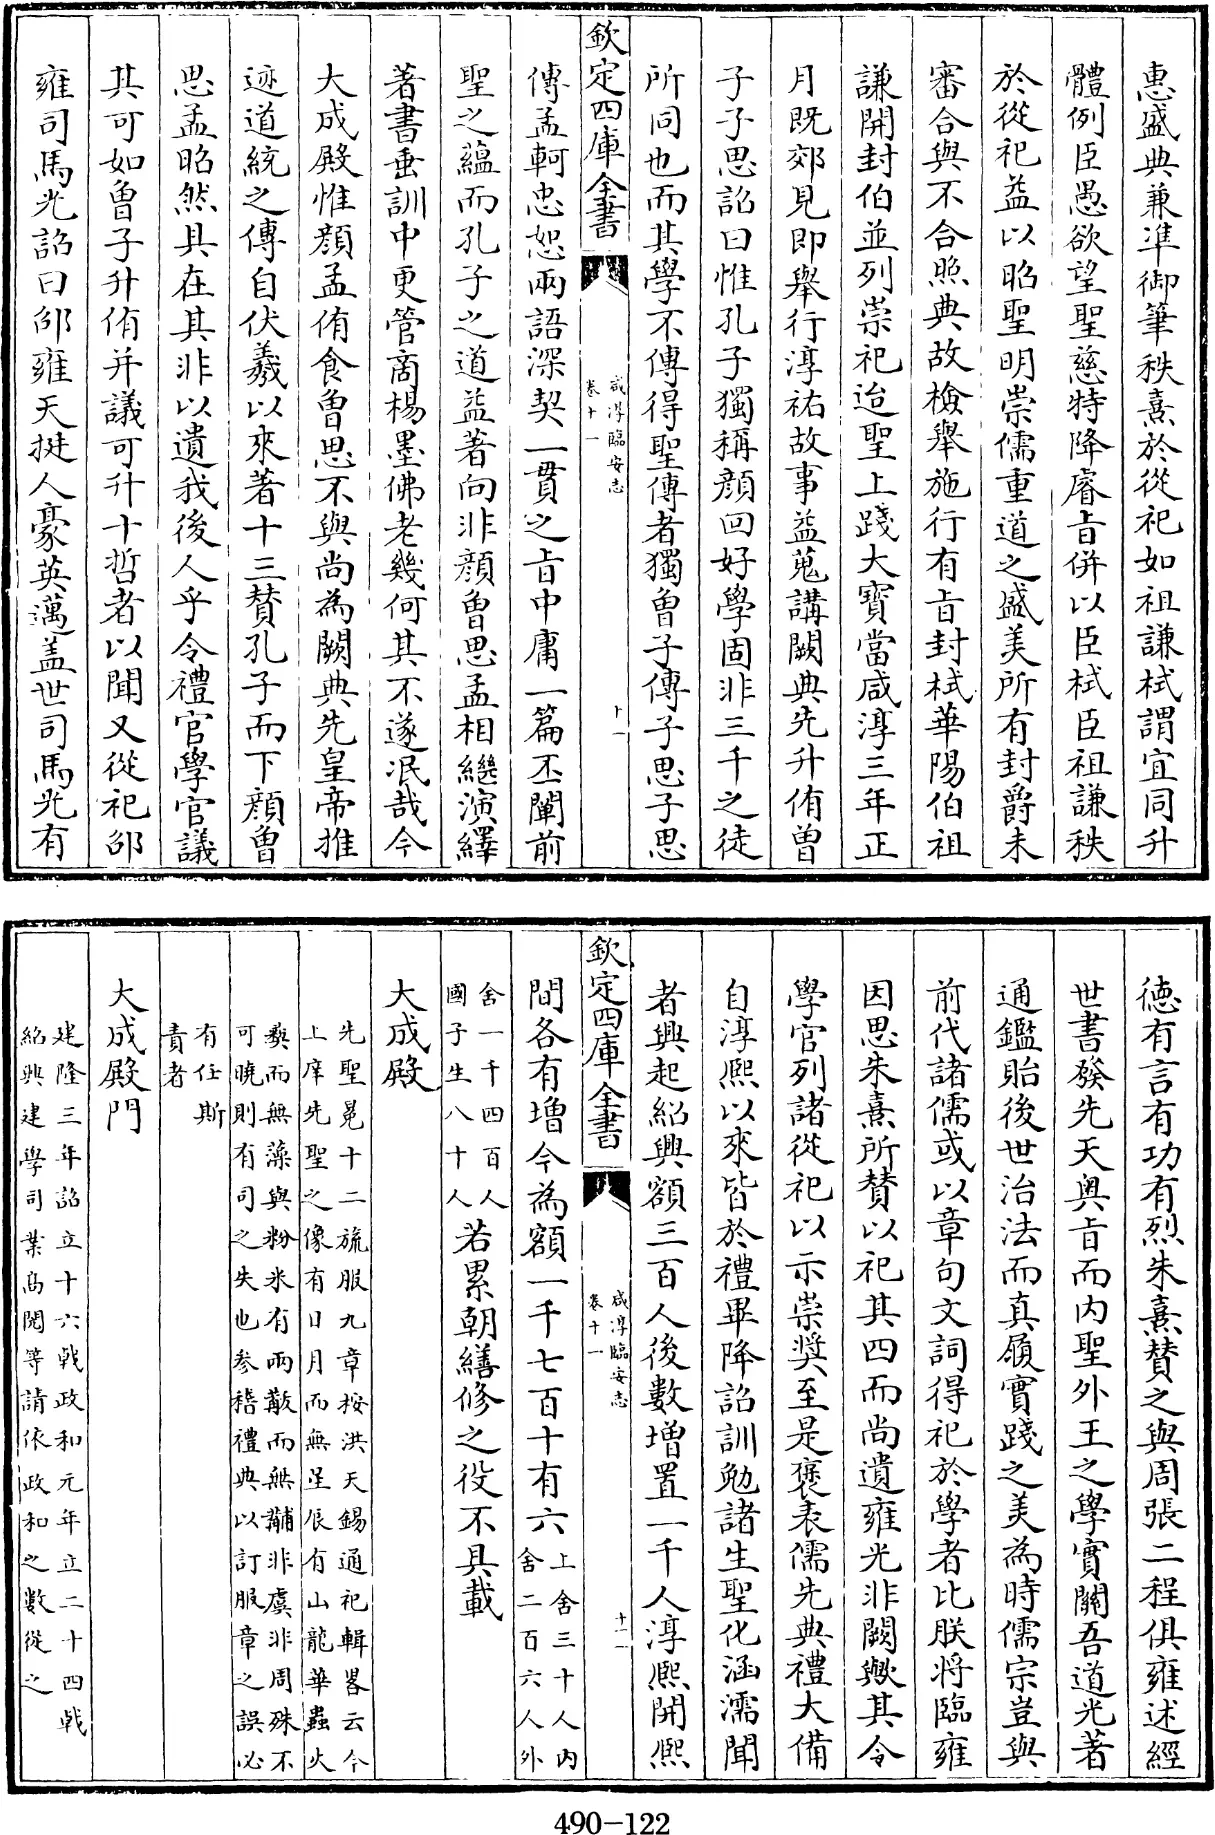 惠盛典兼准御筆秩熹於從祀如祖謙栻謂宜同升
體例臣愚欲望聖慈特降睿旨併以臣栻臣祖謙秩
於從祀益以昭聖明崇儒重道之盛美所有封爵未
審合與不合照典故檢舉施行有旨封栻華陽伯祖
謙開封伯並列崇祀迨聖上踐大寶當咸淳三年正
月既郊見即舉行淳祐故事益蒐講闕典先升侑曾
子子思詔曰惟孔子獨稱顔回好學固非三千之徒
所同也而其學不傳得聖傳者獨曾子傳子思子思
欽定四庫全書
咸淳臨安志
卷十一
十一
傳孟軻忠恕兩語深契一貫之旨中庸一篇丕闡前
聖之藴而孔子之道益著向非顔曾思孟相繼演繹
著書垂訓中更管商楊墨佛老幾何其不遂泯哉今
大成殿惟顔孟侑食曾思不與尚為闕典先皇帝推
迹道統之傳自伏羲以來著十三贊孔子而下顔曾
思孟昭然具在其非以遺我後人乎令禮官學官議
其可如曾子升侑并議可升十哲者以聞又從祀邵
雍司馬光詔曰邵雍天挺人豪英邁盖世司馬光有
徳有言有功有烈朱熹贊之與周張二程俱雍述經
世書發先天奥旨而内聖外王之學實關吾道光著
通鑑貽後世治法而真履實踐之美為時儒宗豈與
前代諸儒或以章句文詞得祀於學者比朕將臨雍
因思朱熹所贊以祀其四而尚遺雍光非闕歟其令
學官列諸從祀以示崇奬至是褒表儒先典禮大備
自淳熙以來皆於禮畢降詔訓勉諸生聖化涵濡聞
者興起紹興額三百人後數增置一千人淳熙開熙
欽定四庫全書
咸淳臨安志
卷十一
十二
間各有增今為額一千七百十有六上舍三十人内
舍二百六人外
舍一千四百人
國子生八十人若累朝繕修之役不具載
大成殿
先聖冕十二旒服九章按洪天錫通祀輯畧云今
上庠先聖之像有日月而無星辰有山龍華蟲火
藝而無藻與粉米有兩黻而無黼非虞非周殊不
可曉則有司之失也參稽禮典以訂服章之誤必
有任斯
責者
大成殿門
建隆三年詔立十六戟政和元年立二十四戟
紹興建學司業高閌等請依政和之數從之
490-122